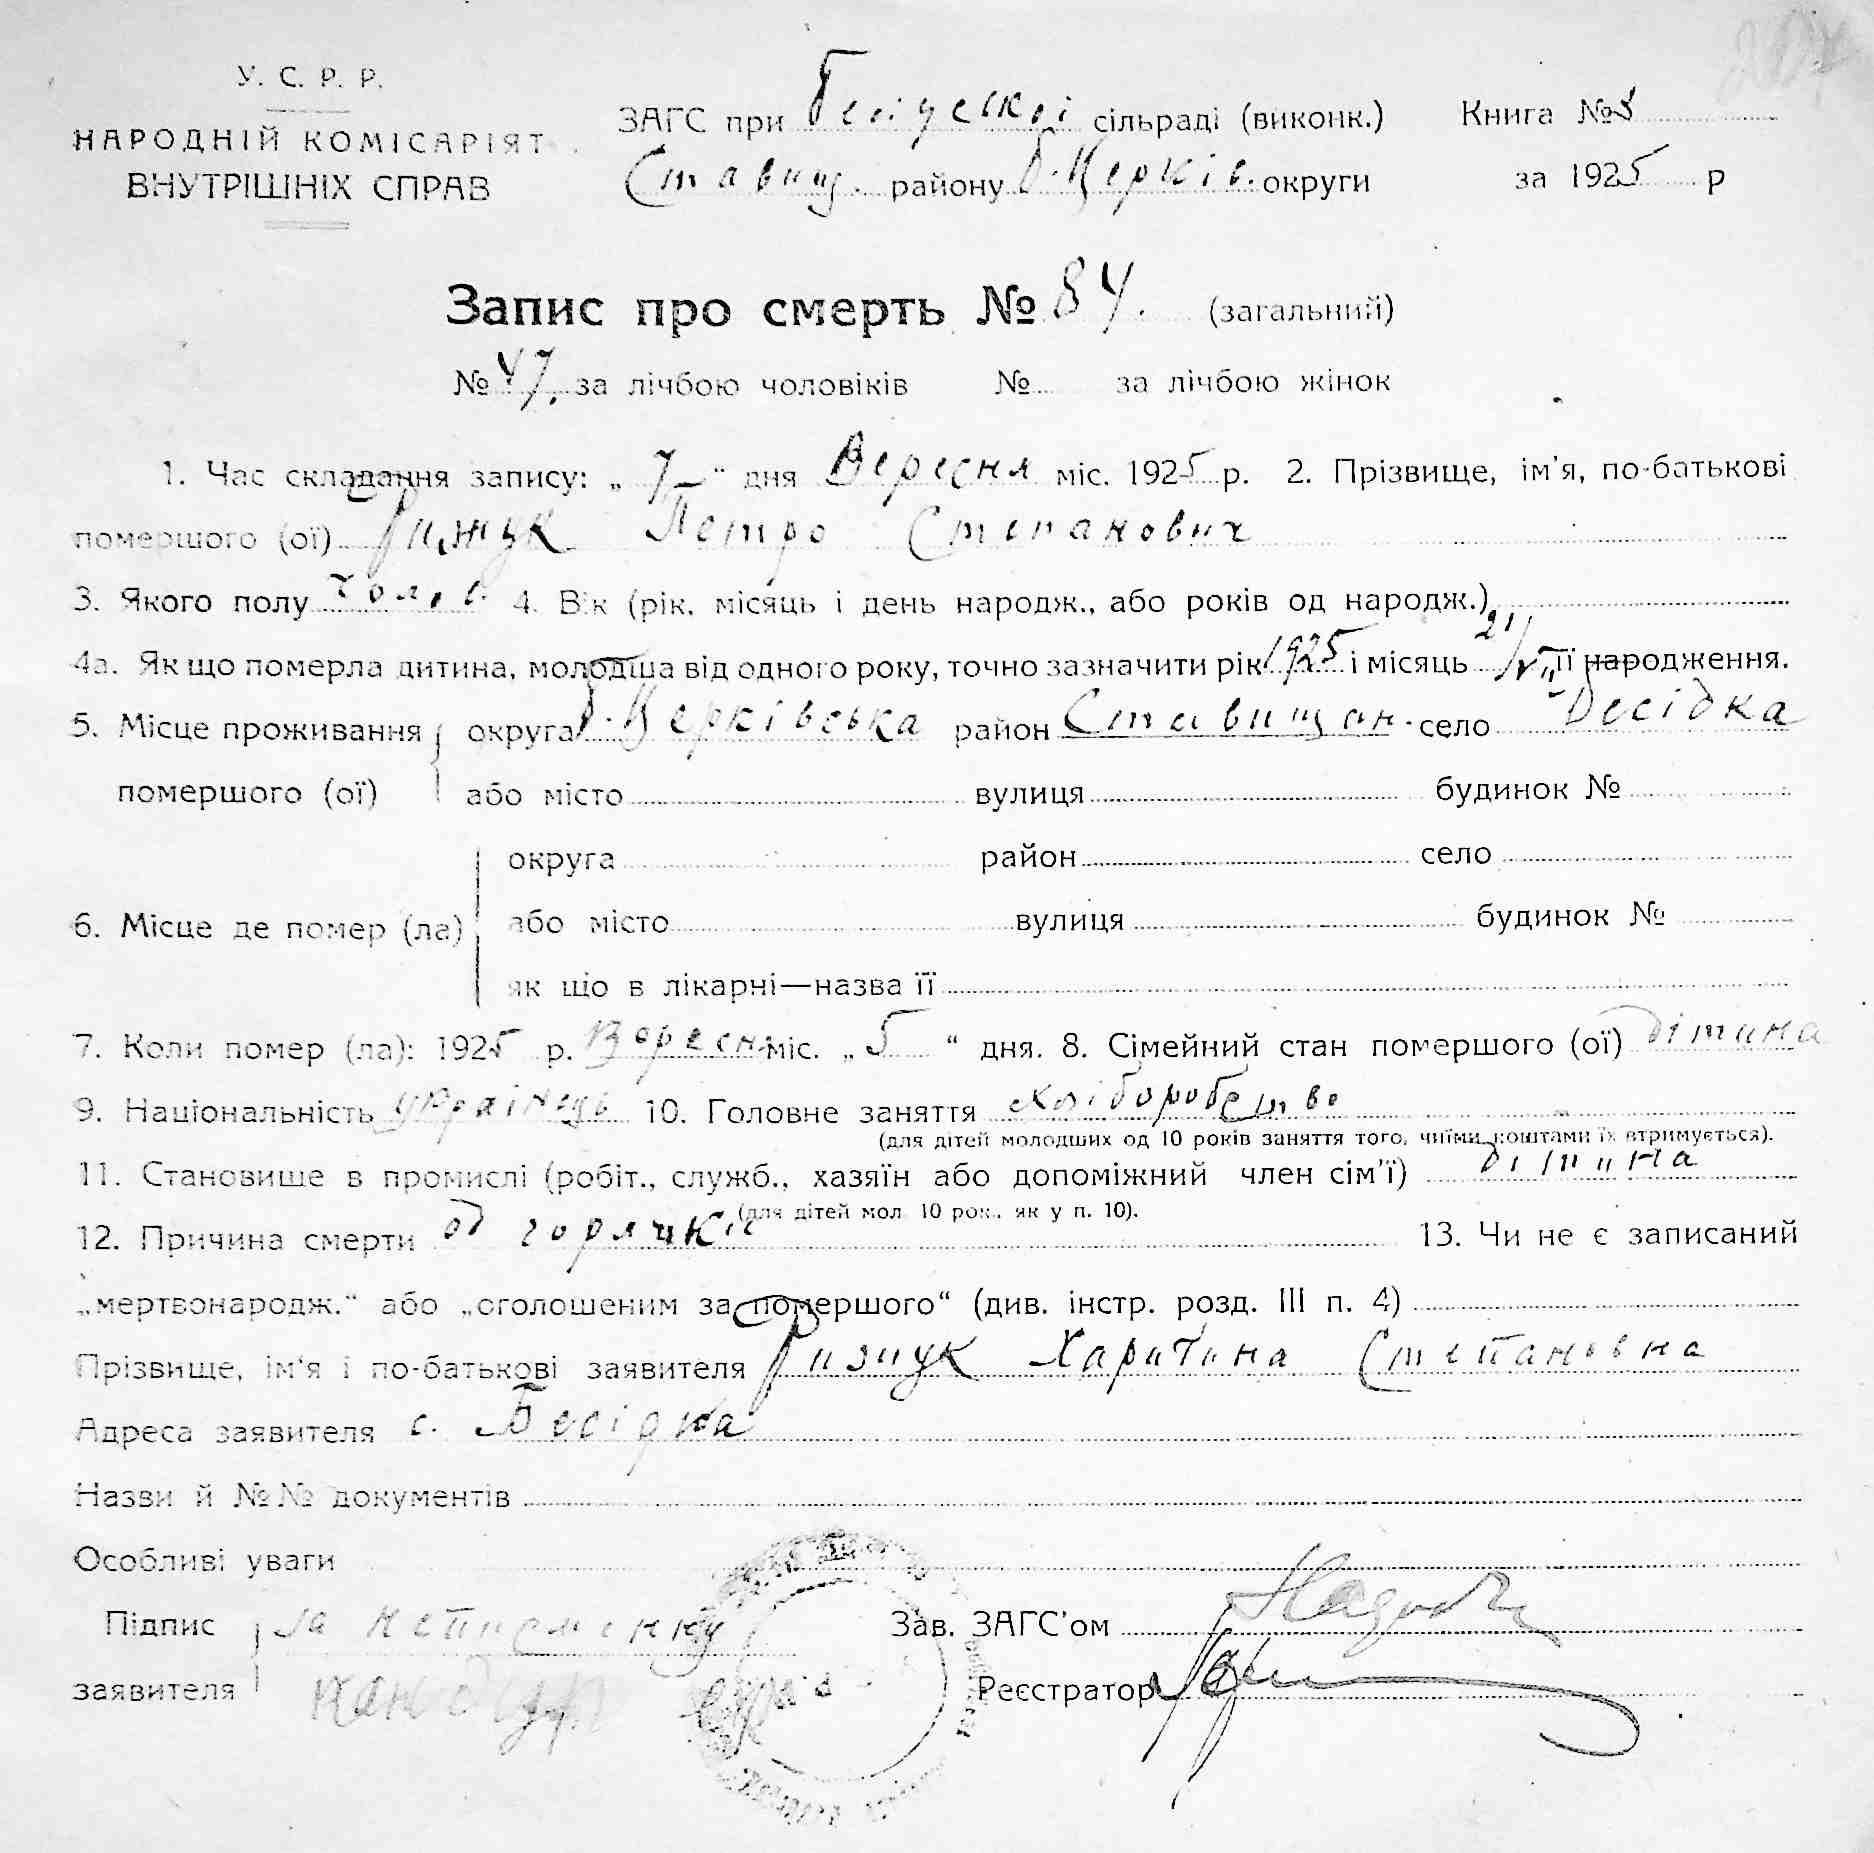 У. С. Р. Р.
НАРОДНІЙ КОМІСАРІЯТ
ВНУТРІШНІХ СПРАВ
ЗАГС при Бесідській сільраді (виконк.) Книга №
Ставищ. району Б. Церків. округи за 1925 р
Запис про смерть № 84. (загальний)
№ 47. за лічбою чоловіків № за лічбою жінок
1. Час складання запису: „ 7 “ дня Вересня міс. 1925 р. 2. Прізвище, ім'я, по-батькові
помершого (ої) Рижук Петро Степанович
3. Якого полу чолов. 4. Вік (рік, місяць і день народж., або років од народж.)
4а. Як що померла дитина, молодша від одного року, точно зазначити рік 1925 і місяць 21/VII її народження.
5. Місце проживання округа Б. Церківська район Ставищан. село Бесідка
помершого (ої) або місто вулиця будинок №
округа район село
6. Місце де помер (ла) або місто вулиця будинок №
як що в лікарні—назва її
7. Коли помер (ла): 1925 р. Вересн міс. „ 5 “ дня. 8. Сімейний стан помершого (ої) дітина
9. Національність українець 10. Головне заняття хліборобство
(для дітей молодших од 10 років заняття того, чиїми коштами їх втримується).
11. Становище в промислі (робіт., служб., хазяїн або допоміжний член сім'ї) дітина
(для дітей мол. 10 рок., як у п. 10).
12. Причина смерти од горячкі 13. Чи не є записаний
„мертвонародж.“ або „оголошеним за помершого“ (див. інстр. розд. III п. 4)
Прізвище, ім'я і по-батькові заявителя Ризнук Харитина Степановна
Адреса заявителя с. Бесідка
Назви й №№ документів
Особливі уваги
Підпис за неписменну Зав. ЗАГС'ом
заявителя Реєстратор